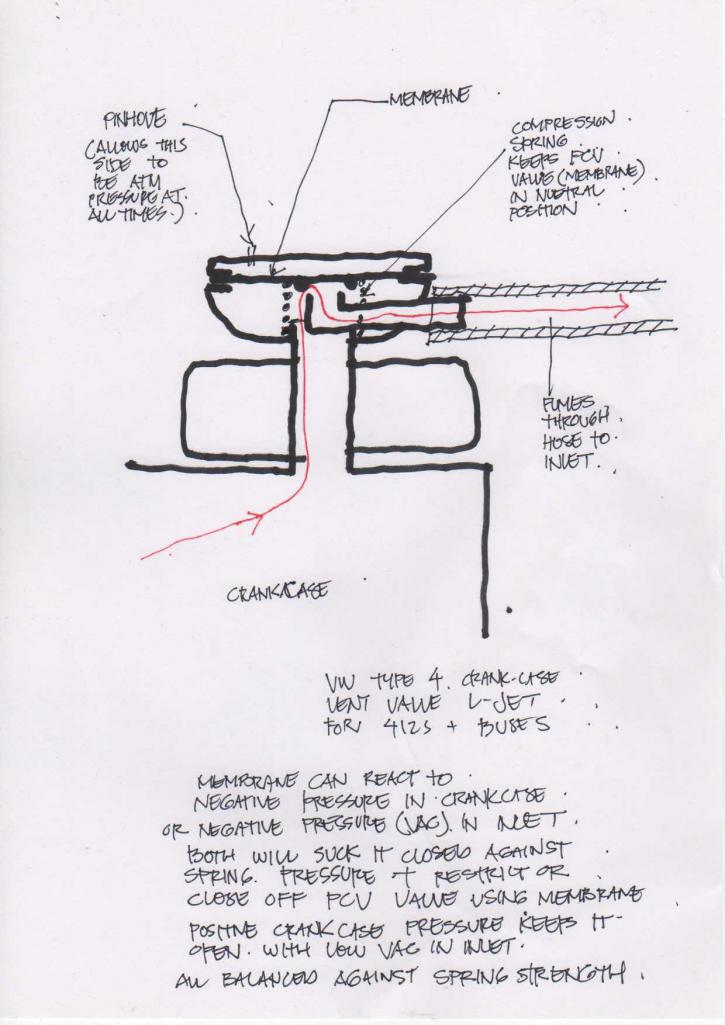 PINHOLE
(ALLOWS THIS
SIDE TO
BE ATM
PRESSURE AT
ALL TIMES.)
MEMBRANE
COMPRESSION
SPRING
KEEPS PCV
VALVE (MEMBRANE)
IN NUETRAL
POSITION
FUMES
THROUGH
HOSE TO
INLET.
CRANKCASE
VW TYPE 4. CRANK-CASE
VENT VALVE L-JET
FOR 412S + BUSES
MEMBRANE CAN REACT TO
NEGATIVE PRESSURE IN CRANKCASE
OR NEGATIVE PRESSURE (VAC). IN INLET.
BOTH WILL SUCK IT CLOSED AGAINST
SPRING. PRESSURE + RESTRICT OR
CLOSE OFF PCV VALVE USING MEMBRANE
POSITIVE CRANKCASE PRESSURE KEEPS IT
OPEN. WITH LOW VAC IN INLET.
ALL BALANCED AGAINST SPRING STRENGTH.